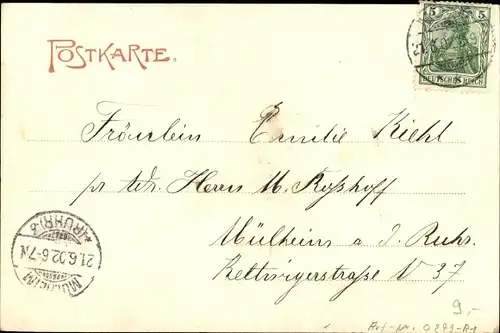 POSTKARTE.
5 5
DEUTSCHES REICH
Fräulein Emilie Kiehl
pr Adr. Herrn M. Roßhoff
Mülheim a. d. Ruhr.
Kettwigerstraße N 37
MÜLHEIM
21.6.02.6-7N
*(RUHR)*
9,-